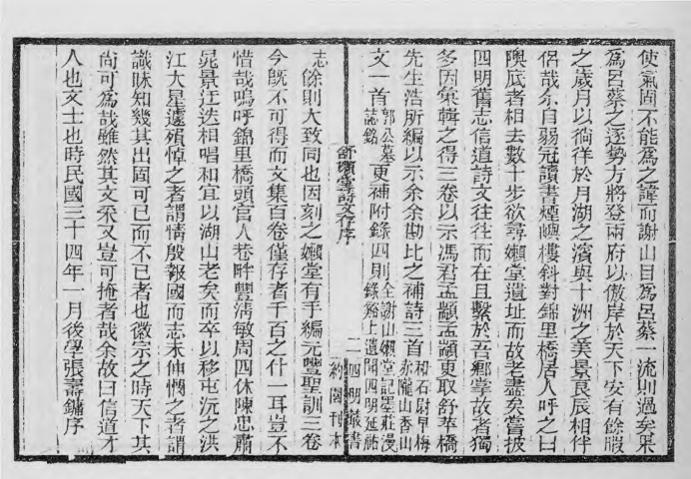 使氣固不能爲之諱而謝山目爲呂蔡一流則過矣果
爲呂蔡之逐勢方將登兩府以傲岸於天下安有餘暇
之歲月以徜徉於月湖之濱與十洲之美景良辰相伴
侶哉余自弱冠讀書煙嶼樓斜對錦里橋居人呼之曰
陳底者相去數十步欲尋嬾堂遺址而故老盡矣嘗披
四明舊志信道詩文往往而在且繫於吾鄉掌故者獨
多因彙輯之得三卷以示馮君孟顓孟顓更取舒華橋
先生浩所編以示余余勘比之補詩三首和石尉早梅
赤隴山香山
文一首郭公墓
誌銘更補附錄四則全謝山嬾堂記墨莊漫
錄谿上遺聞四明延祐
舒嬾堂詩文存序
二
四明叢書
約園刊本
志餘則大致同也因刻之嬾堂有手編元豐聖訓三卷
今既不可得而文集百卷僅存者千百之什一耳豈不
惜哉嗚呼錦里橋頭官人巷畔豐淸敏周四休陳忠肅
晁景迂迭相唱和宜以湖山老矣而卒以移屯沅之洪
江大星遽殞悼之者謂情殷報國而志未伸憫之者謂
識昧知幾其出固可已而不已者也徽宗之時天下其
尚可爲哉雖然其文采又豈可掩者哉余故曰信道才
人也文士也時民國三十四年一月後學張壽鏞序